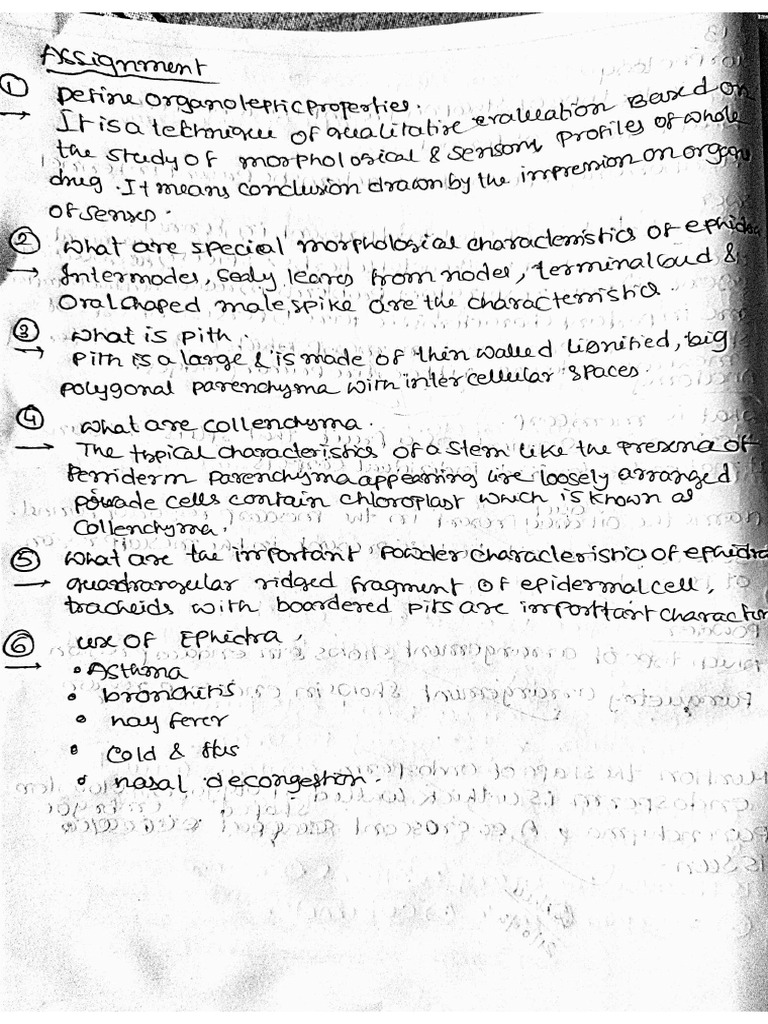 Assignment
① Define organoleptic properties.
→ It is a technique of qualitative evaluation Based on
the study of morphological & sensory profiles of whole
drug. It means conclusion drawn by the impression on organs
of senses.
② What are special morphological characteristics of ephidra
→ Internodes, Scaly leaves from nodes, terminal bud &
Oral shaped male spike are the characteristics
③ What is pith.
→ Pith is a large & is made of thin walled lignified, big
polygonal parenchyma with intercellular spaces.
④ What are collenchyma.
→ The typical characteristics of a stem like the presence of
Perriderm parenchyma appearing like loosely arranged
cells contain chloroplast which is known as
Collenchyma.
⑤ What are the important Powder characteristic of ephidra
→ quadrangular ridged fragment of epidermal cell,
tracheids with boardered pits are importtant character
⑥ use of Ephidra,
→ • Asthma
• bronchitis
• hay fever
• Cold & flus
• nasal decongestion.